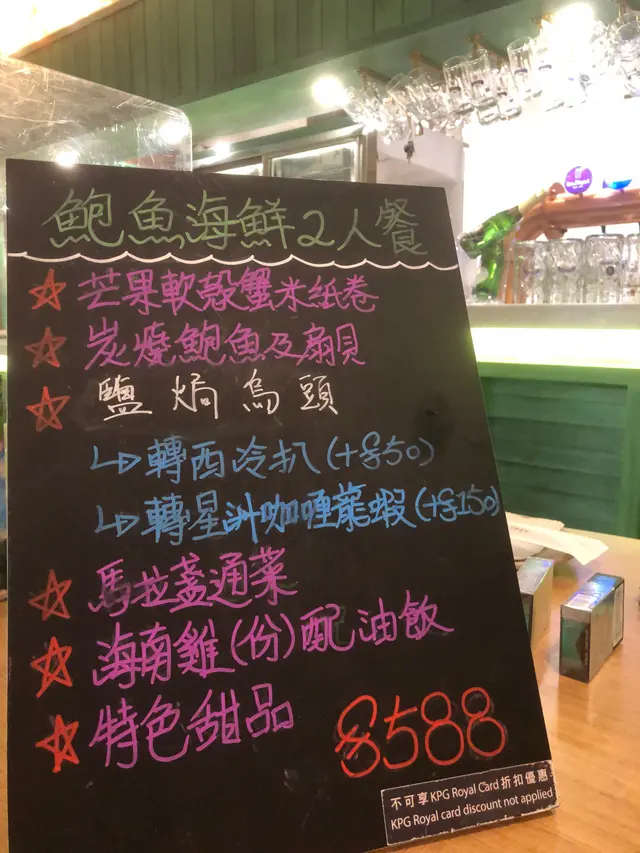 鮑魚海鮮2人餐
芒果軟殼蟹米紙卷
炭燒鮑魚及扇貝
鹽焗烏頭
轉西冷扒(+$50)
轉星洲咖喱龍蝦(+$150)
馬拉盞通菜
海南雞(份)配油飯
特色甜品 $588
不可享KPG Royal Card折扣優惠
KPG Royal card discount not applied